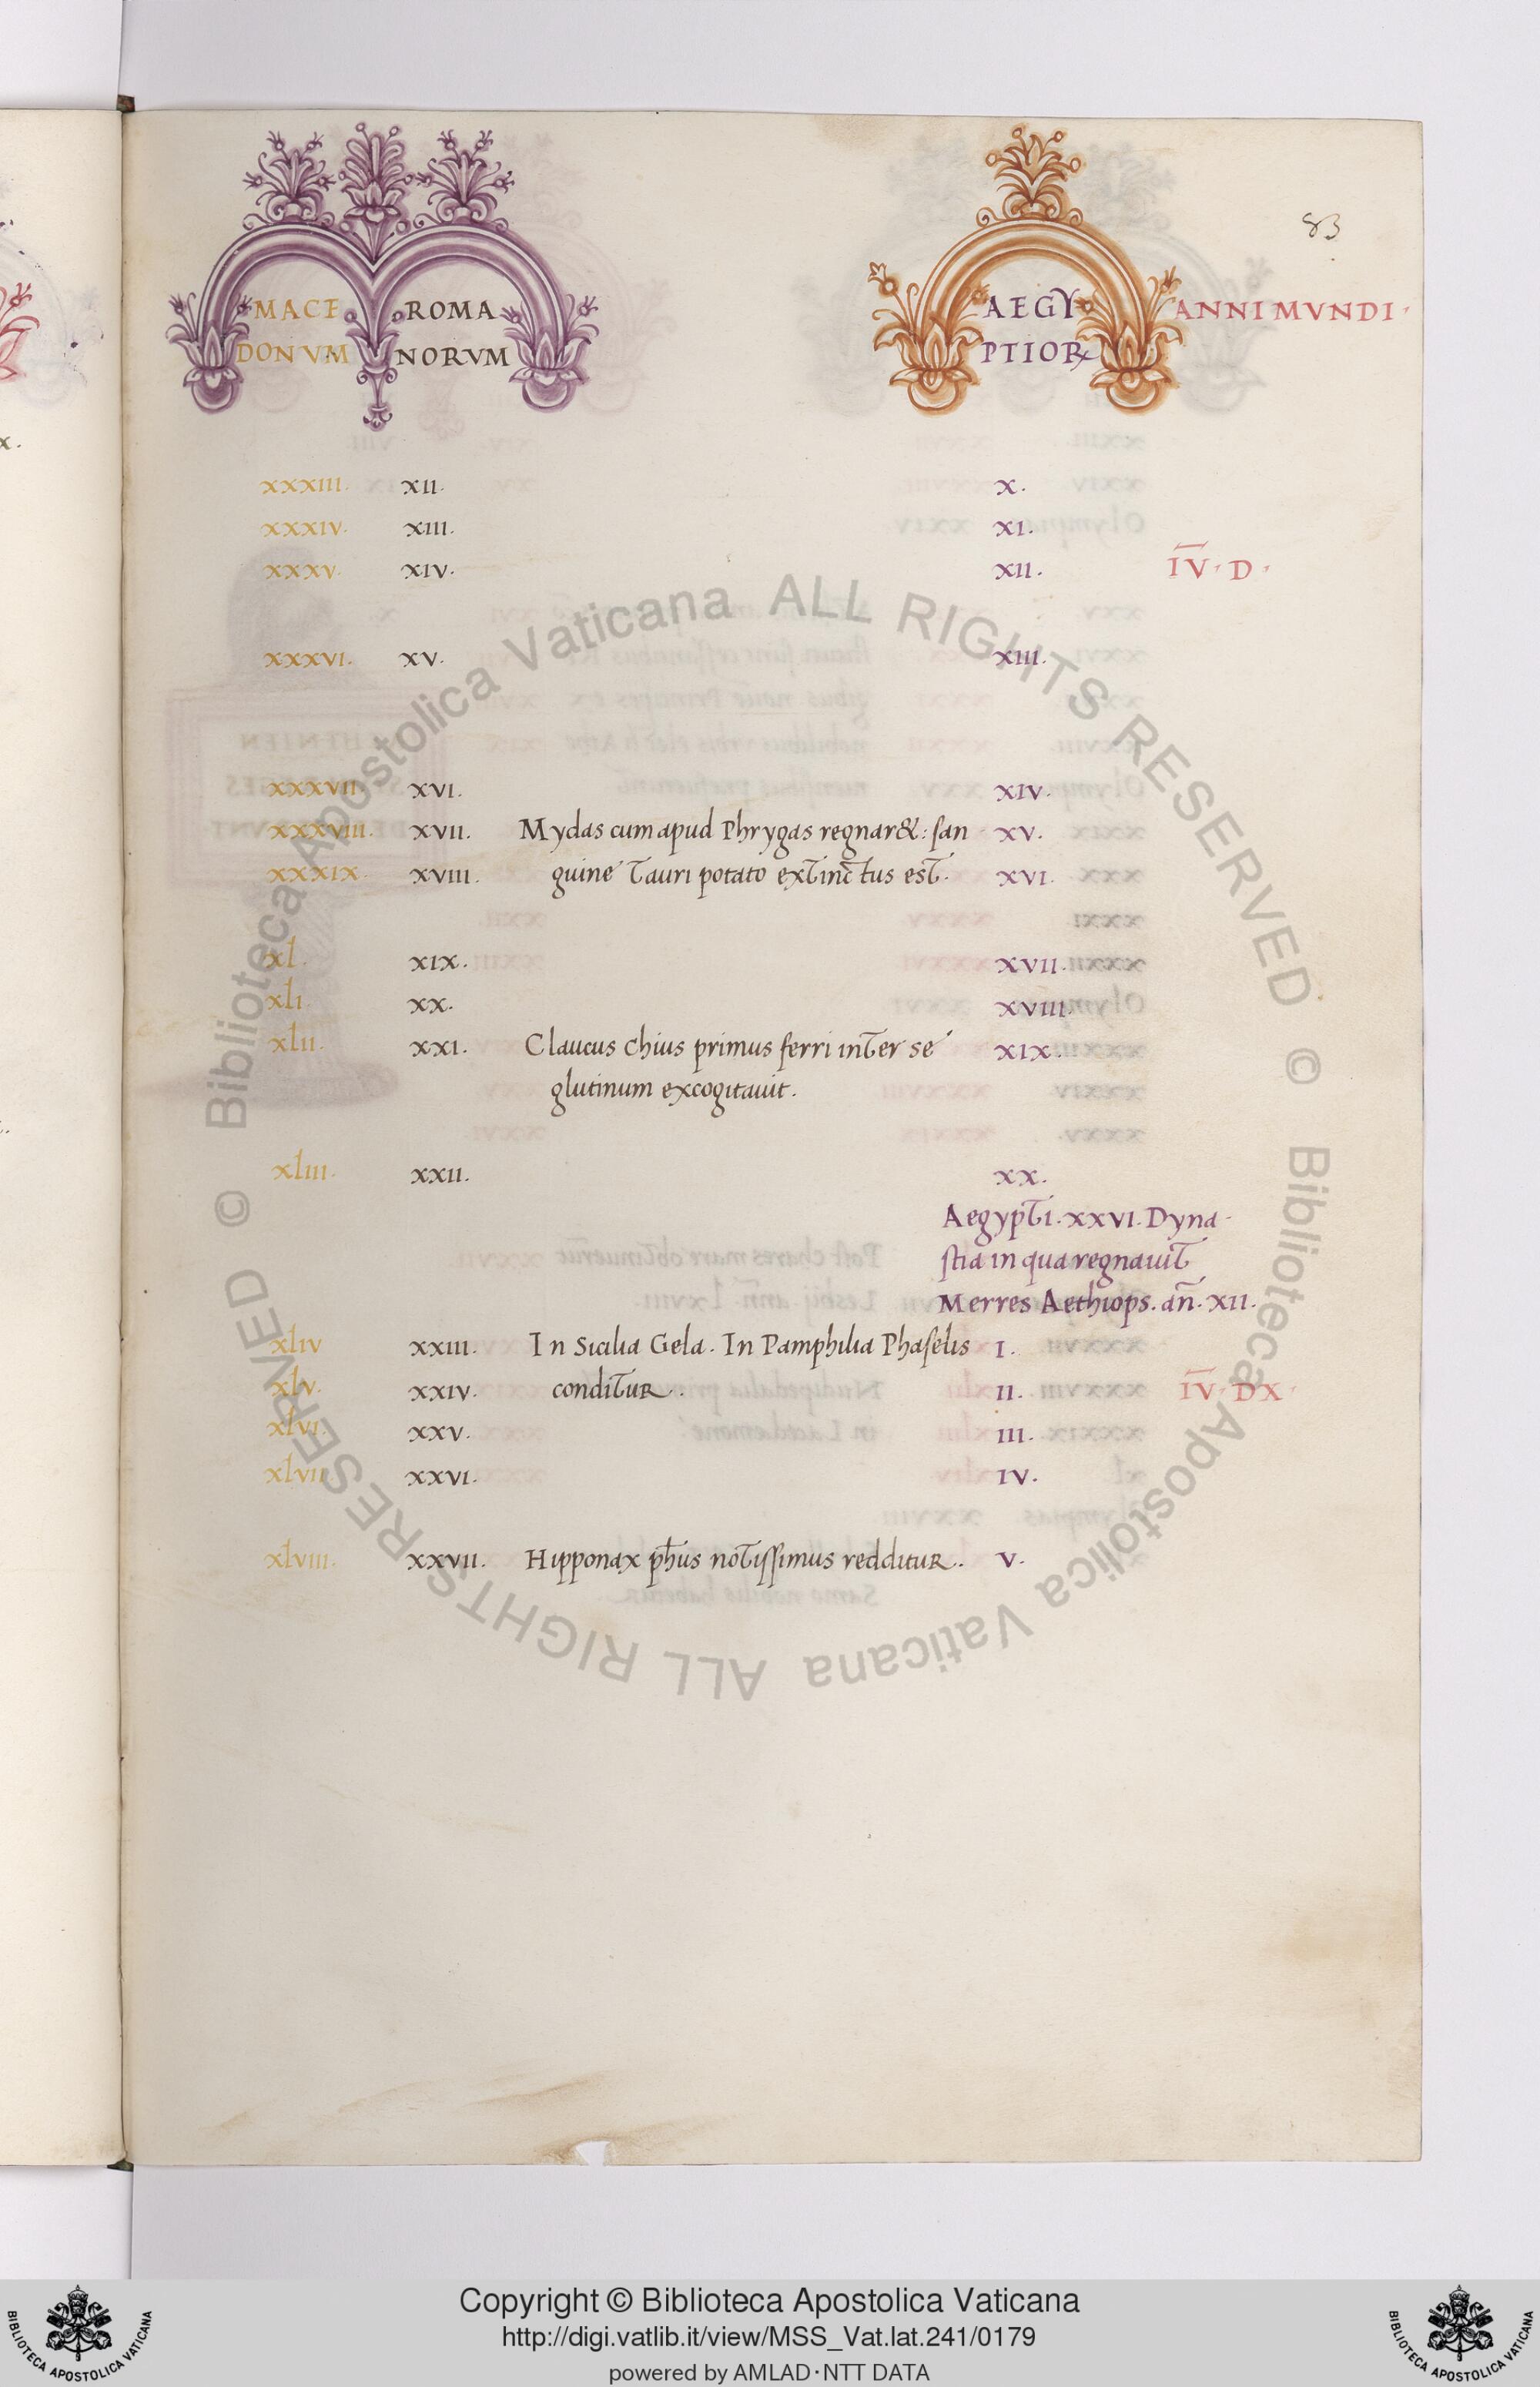 83
MACE ROMA AEGY ANNI MVNDI
DONVM NORVM PTIOR
XXXIII. XII. X.
XXXIV. XIII. XI.
XXXV. XIV. XII. IV. D.
XXXVI. XV. XIII.
XXXVII. XVI. XIV.
XXXVIII. XVII. Mydas cum apud Phrygas regnar&: san XV.
XXXIX. XVIII. guine Tauri potato extinctus est. XVI.
xl. XIX. XVII.
xli. XX. XVIII.
xlii. XXI. Claucus chius primus ferri inter se XIX.
glutinum excogitauit.
xliii. XXII. XX.
Aegypti. XXVI. Dyna
stia in qua regnauit
Merres Aethiops. añ. XII.
xliv XXIII. In Sicilia Gela. In Pamphilia Phaselis I.
xlv. XXIV. conditur. II. IV. DX.
xlvi. XXV. III.
xlvii XXVI. IV.
xlviii. XXVII. Hipponax ph̄us notissimus redditur. V.
© Biblioteca Apostolica Vaticana ALL RIGHTS RESERVED
© Biblioteca Apostolica Vaticana ALL RIGHTS RESERVED
Copyright © Biblioteca Apostolica Vaticana
http://digi.vatlib.it/view/MSS_Vat.lat.241/0179
powered by AMLAD·NTT DATA
BIBLIOTECA APOSTOLICA VATICANA
BIBLIOTECA APOSTOLICA VATICANA